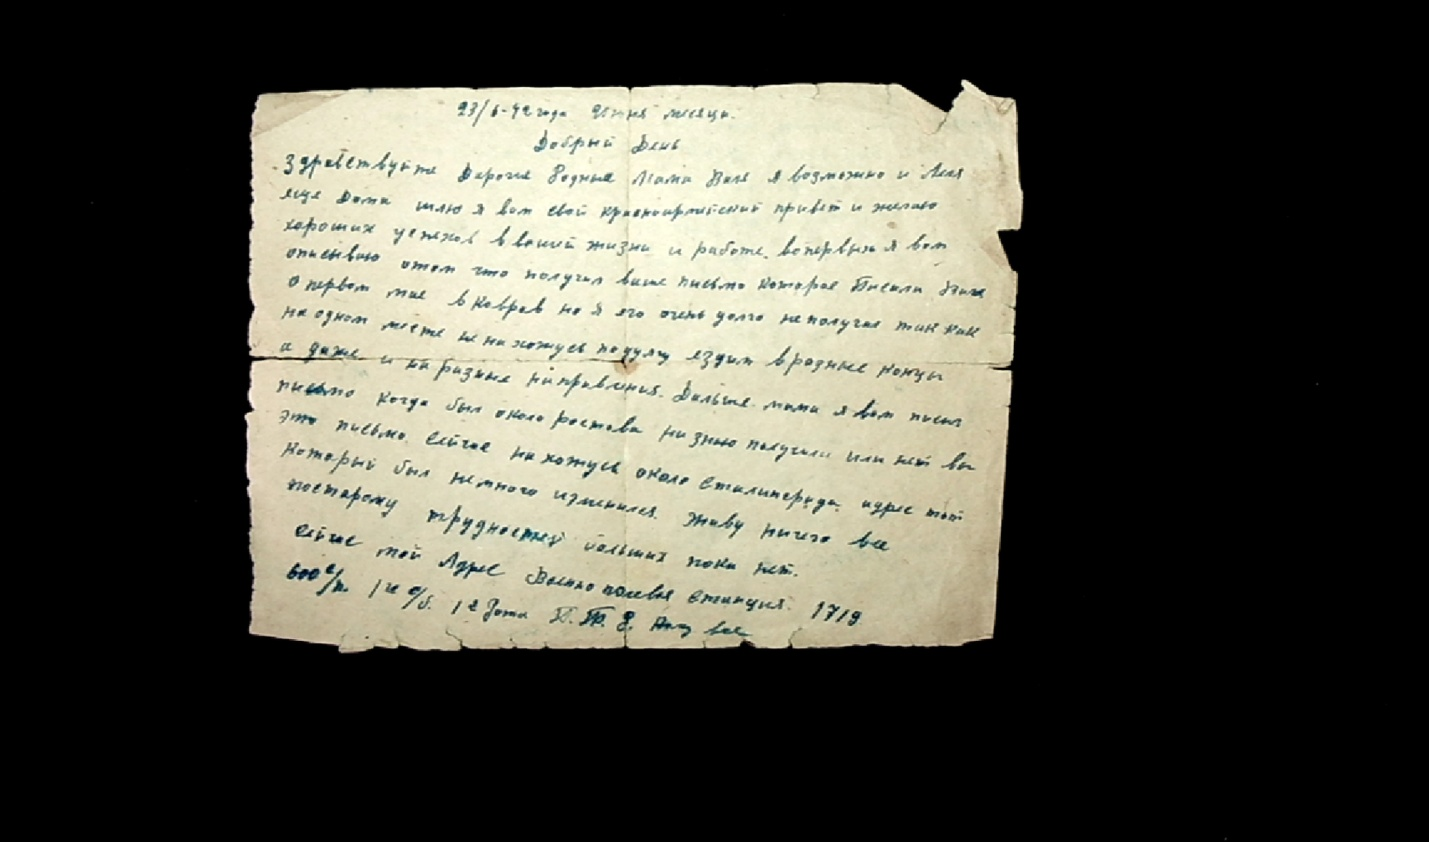 23/6-42 года Июня месяца.
Добрый День
Здравствуйте Дорогие Родные Мама Валя я возможно и Леля
еще дома шлю я вам свой красноармейский привет и желаю
хороших успехов в вашей жизни и работе. вопервых я вам
описываю отом что получил ваше письмо которое Писали
о первом мае в Ковров но я его очень долго неполучал так как
на одном месте не нахожусь ездим вразные концы
и даже и на разные направления. Дальше мама я вам писал
письмо когда был около ростова низнаю получили или нет вы
это письмо. сейчас нахожусь около Сталинграда. адрес тот
который был немного изменился. Живу ничего все
постарому трудностей больших пока нет.
сейчас мой Адрес Военно полевая станция. 1719
600 с/п. 1й с/б. 1я Рота